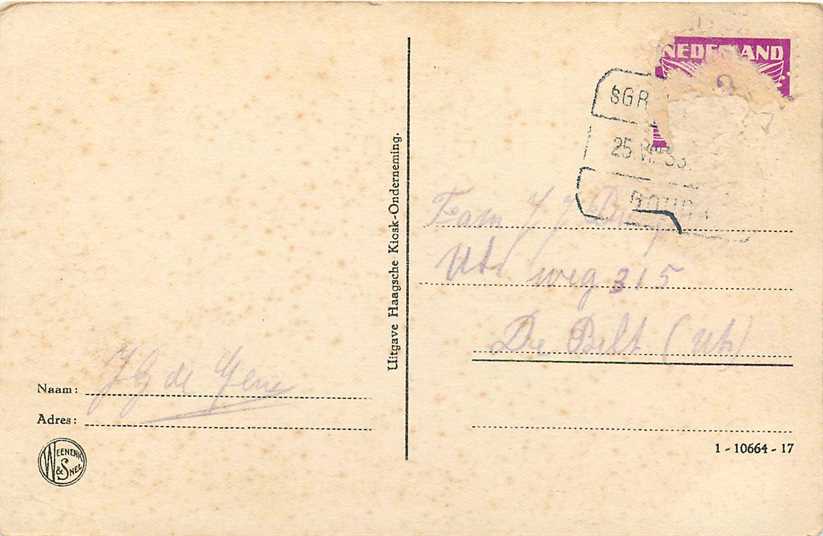 NEDERLAND
SGR
25 VII 53
GOUDA
Uitgave Haagsche Kiosk-Onderneming.
Fam J J
Utr weg 315
De Bilt (Ut)
Naam: J G de
Adres:
WEENENK & SNEL
1 - 10664 - 17